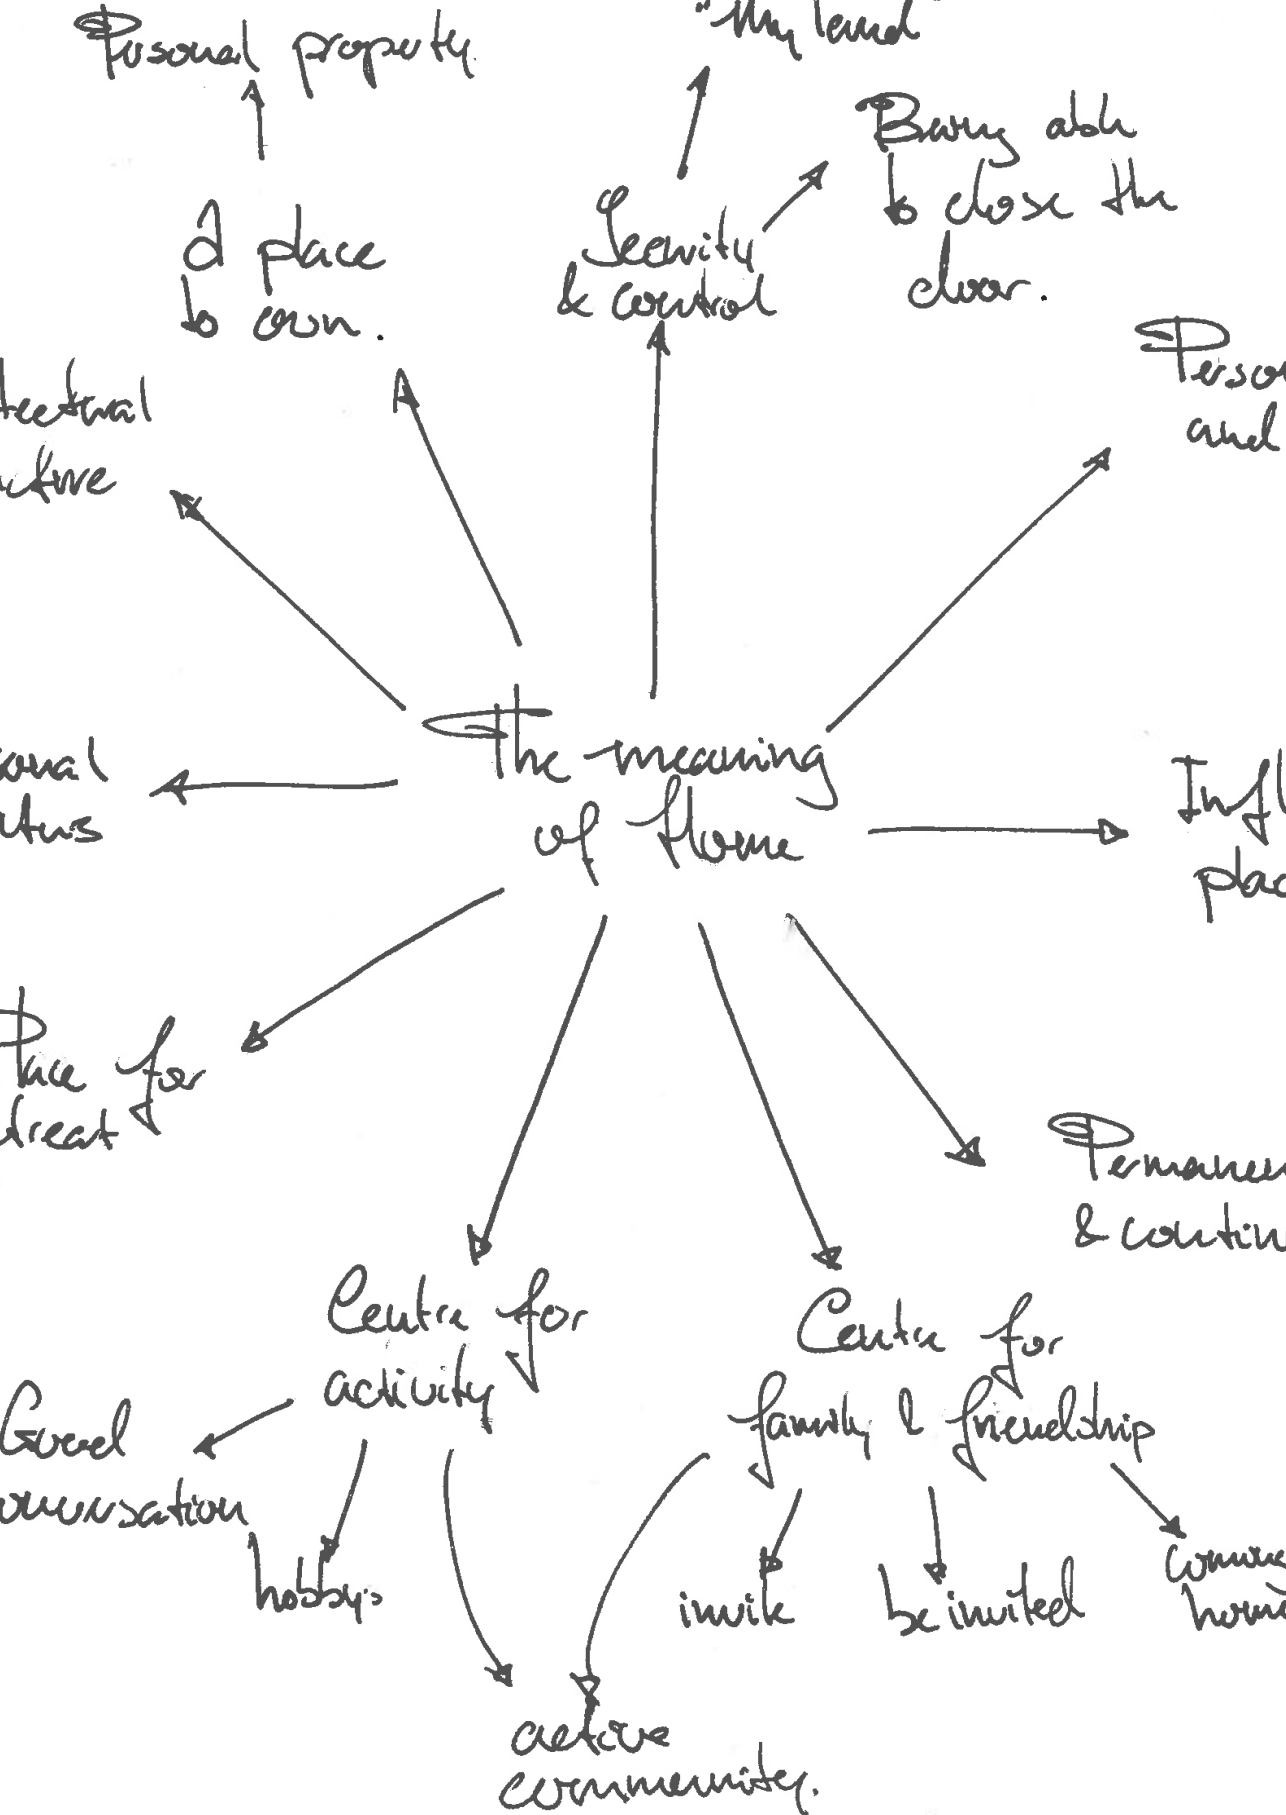 Personal property.
"My land"
Being able
to close the
door.
A place
to own.
Security
& control
Perso
and
tectural
cture
The meaning
of Home
sonal
atus
Infl
plac
Place for
treat
Permanen
& contin
Centre for
activity
Centre for
family & friendship
Good
onversation
hobbys
invite
be invited
coming
home
active
community.